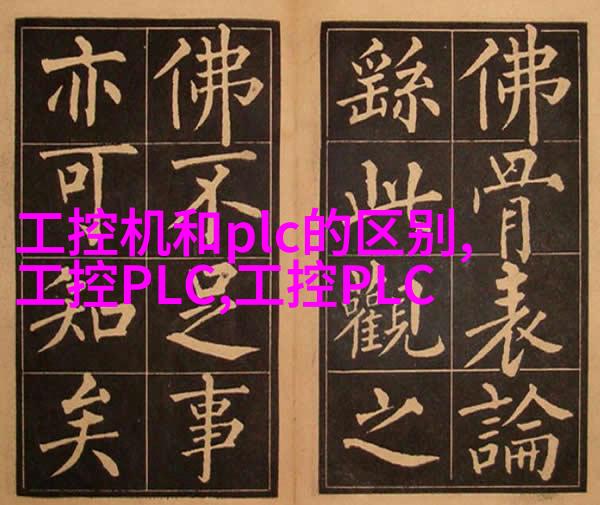 佛骨表論
繇此觀之
佛不足事
亦可知矣
工控机和plc的区别,
工控PLC,工控PLC